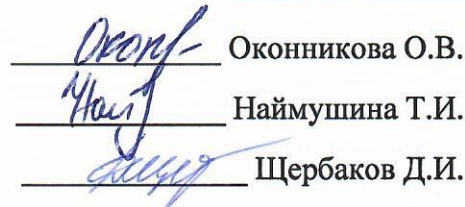 Оконникова О.В.
Наймушина Т.И.
Щербаков Д.И.